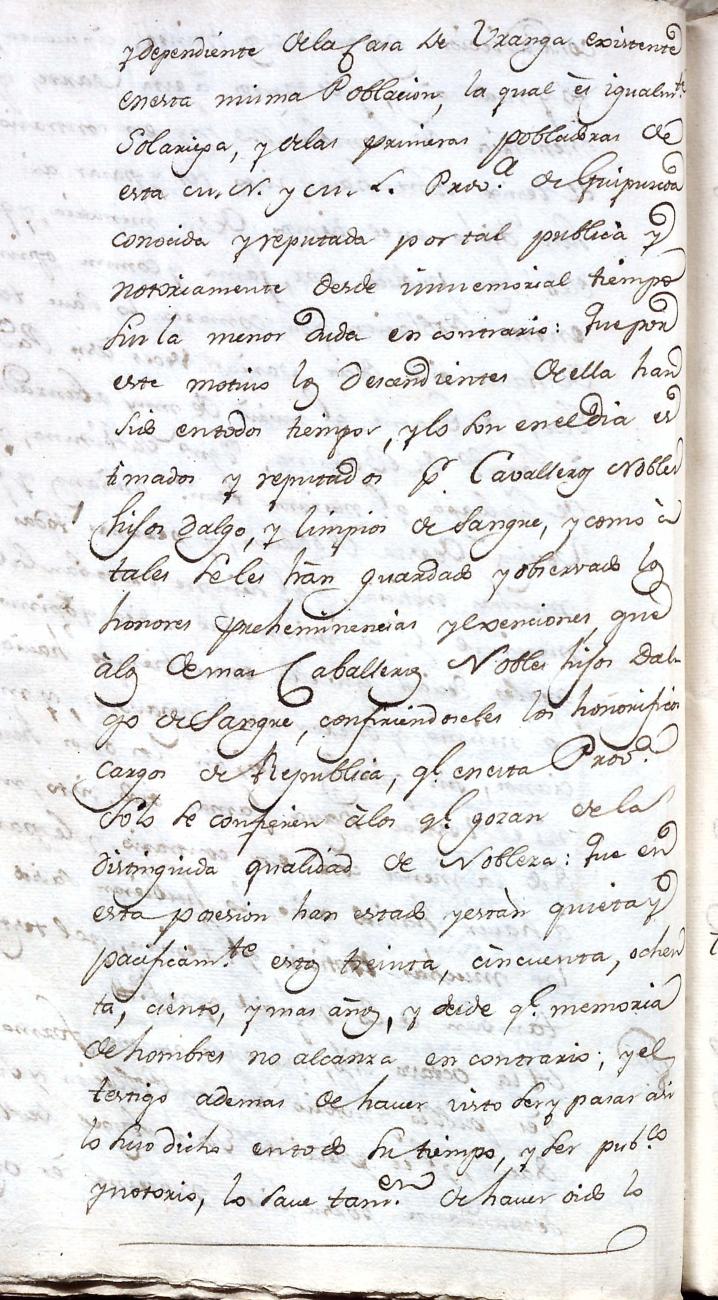 y dependiente de la Casa de Vranga existente
en esta misma Poblacion, la qual ès igualm.te
Solariega, y de las primeras pobladoras de
esta M. N. y M. L. Prov.a de Guipuzcoa
conocida y reputada por tal publica y
notoriamente desde immemorial tiempo
sin la menor duda en contrario: Que por
este motivo los descendientes de ella han
sido en todos tiempos, y lo son en el dia es
timados y reputados p.r Cavalleros Nobles
hijos dalgo, y limpios de sangre, y como à
tales se les hàn guardado y observado los
honores preheminencias y exenciones, que
à los demas Caballeros Nobles hijos dal-
go de Sangre, confiriendoseles los honorificos
cargos de Republica, q.e en esta Prov.a
solo se confieren à los q.e gozan de la
distinguida qualidad de Nobleza: Que en
esta posesion han estado y estàn quieta y
pacificam.te estos treinta, cincuenta, ochen
ta, ciento, y mas años, y desde q.e memoria
de hombres no alcanza en contrario; y el
testigo ademas de haver visto ser y pasar asi
lo susodicho en todo su tiempo, y ser pub.co
y notorio, lo save tamv.en de haver oido lo